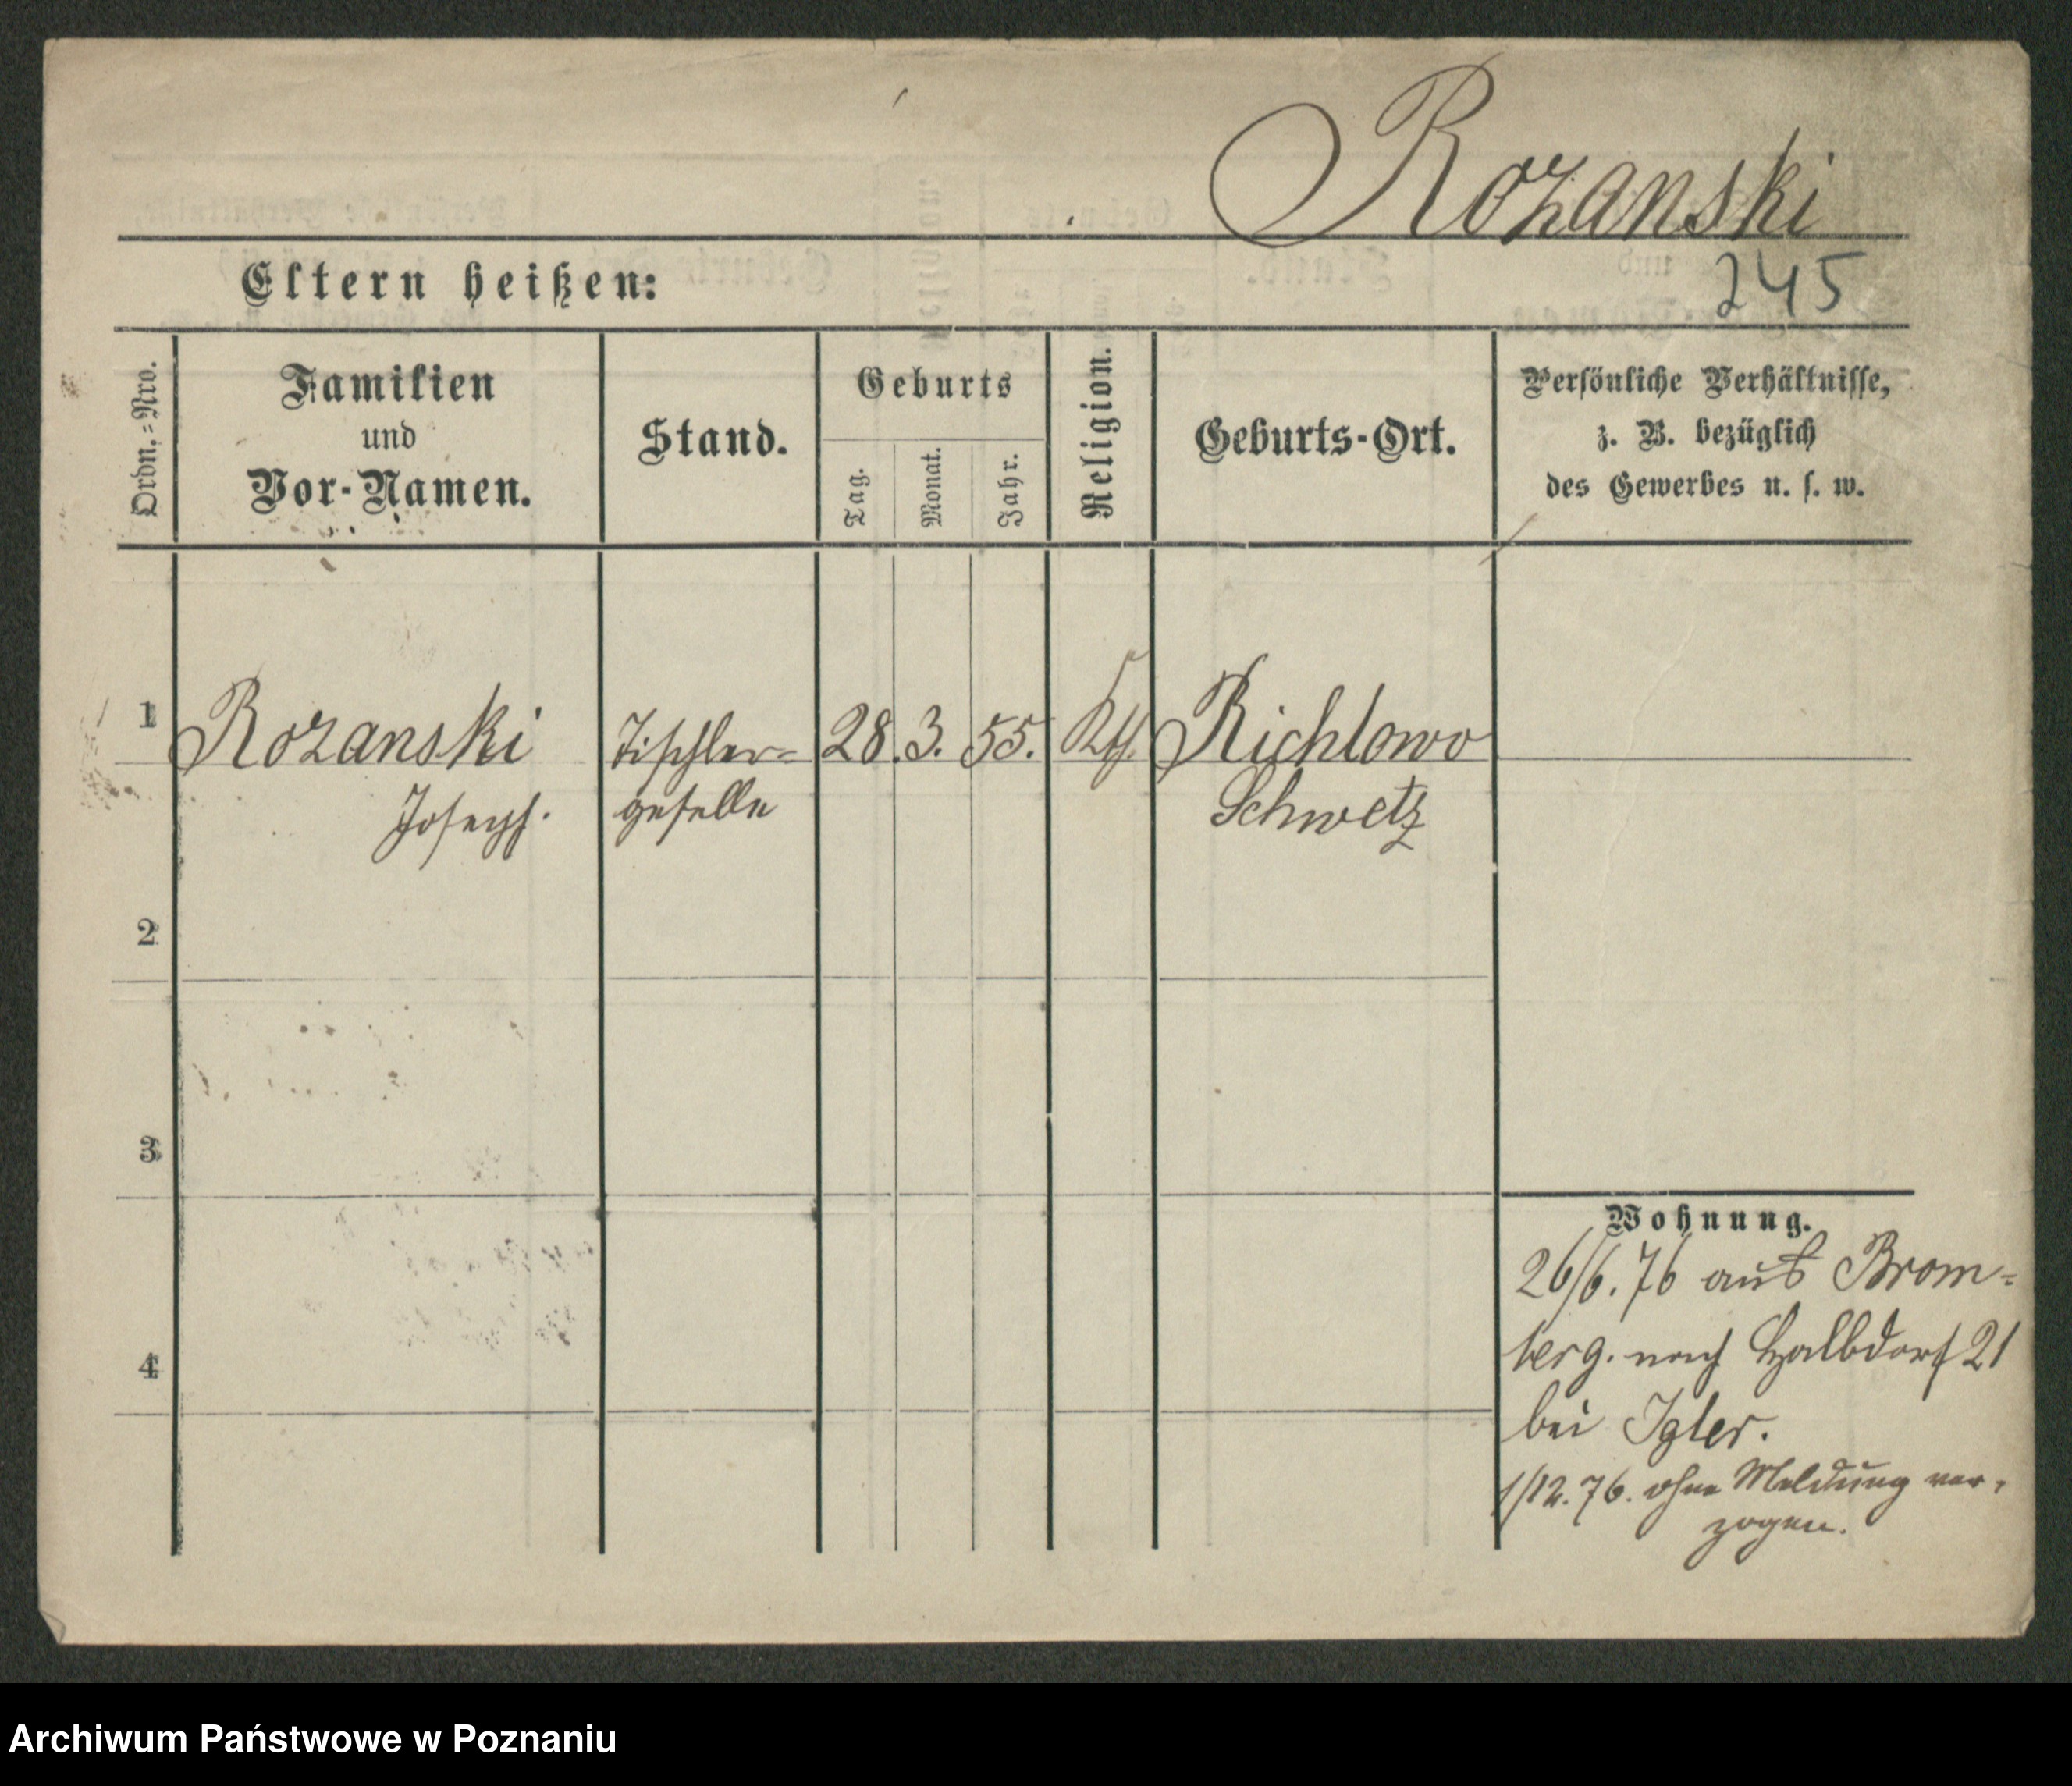 Rozanski
Eltern heißen:
245
Ordn.=Nro.
Familien
und
Vor-Namen.
Stand.
Geburts
Tag.
Monat.
Jahr.
Religion.
Geburts-Ort.
Persönliche Verhältnisse,
z. B. bezüglich
des Gewerbes u. s. w.
1 Rozanski Tischler= 28. 3. 55. Kth. Richlowo
Joseph. geselle Schwetz
2
3
4
Wohnung.
26/6.76 aus Brom=
berg. nach Halbdorf 21
bei Igler.
1/12.76. ohne Meldung ver=
zogen.
Archiwum Państwowe w Poznaniu